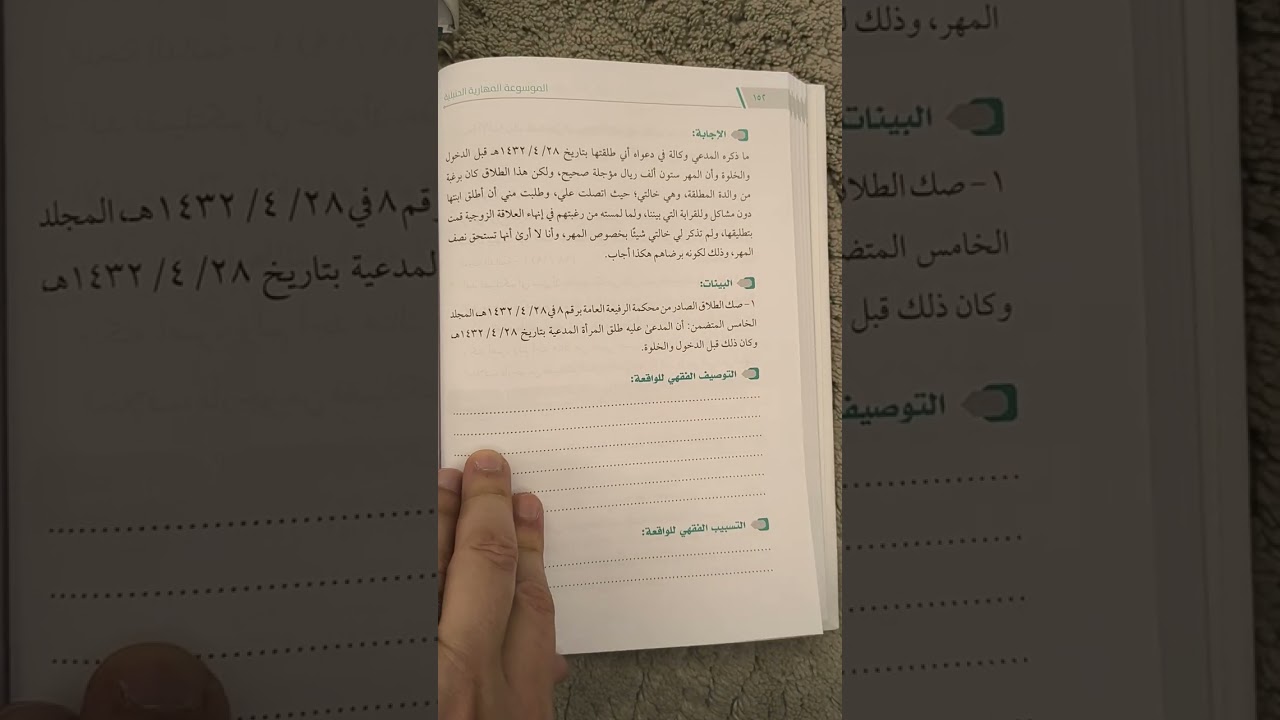 ١٥٢
الموسوعة المهارية
الإجابة:
ما ذكره المدعي وكالة في دعواه أني طلقتها بتاريخ ٢٨/ ٤/ ١٤٣٢هـ قبل الدخول
والخلوة وأن المهر ستون ألف ريال مؤجلة صحيح، ولكن هذا الطلاق كان برغبة
من والدة المطلقة، وهي خالتي؛ حيث اتصلت علي، وطلبت مني أن أطلق ابنتها
دون مشاكل وللقرابة التي بيننا، ولما لمسته من رغبتهم في إنهاء العلاقة الزوجية قمت
بتطليقها، ولم تذكر لي خالتي شيئًا بخصوص المهر، وأنا لا أرى أنها تستحق نصف
المهر، وذلك لكونه برضاهم هكذا أجاب.
البينات:
١- صك الطلاق الصادر من محكمة الرفيعة العامة برقم ٨ في ٢٨/ ٤/ ١٤٣٢هـ، المجلد
الخامس المتضمن: أن المدعى عليه طلق المرأة المدعية بتاريخ ٢٨/ ٤/ ١٤٣٢هـ
وكان ذلك قبل الدخول والخلوة.
التوصيف الفقهي للواقعة:
التسبيب الفقهي للواقعة: